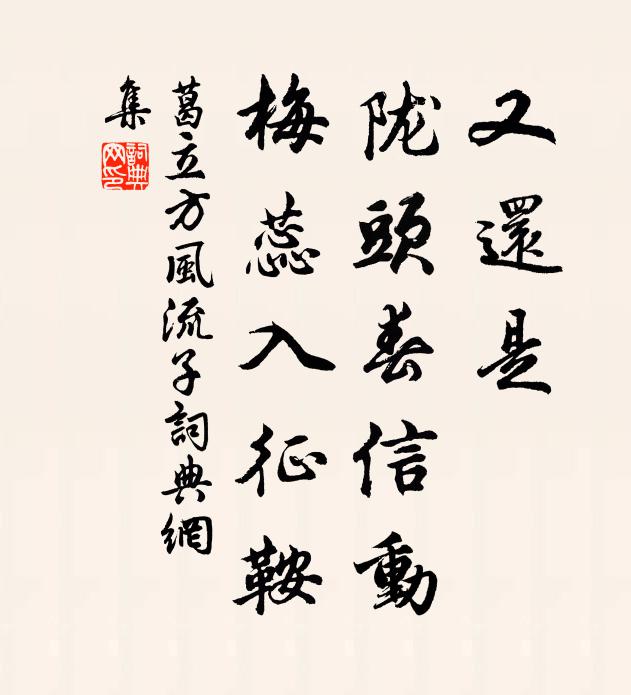 又還是
陇頭春信動
梅蕊入征鞍
葛立方風流子詞典網
集
詞典
网印